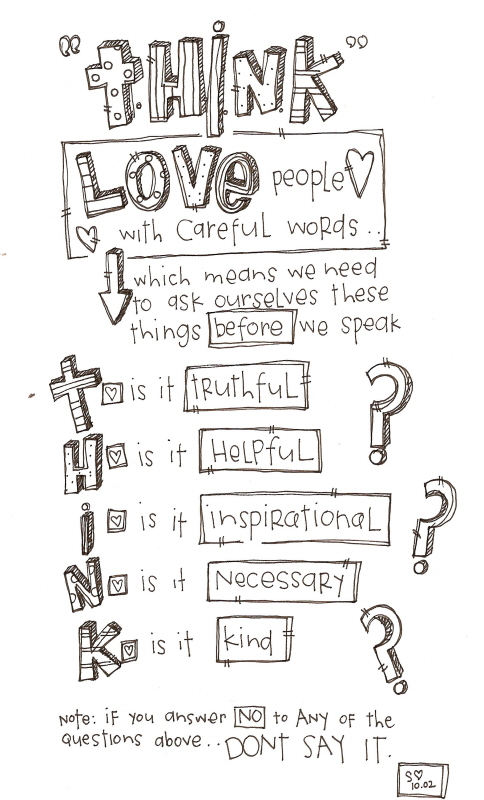 "tHiNK"
LOVe people
with CarefuL words..
which means we need
to ask ourseLves these
things before we speak
T is it truthfuL ?
H is it HeLpfuL
i is it inspirationaL ?
N is it Necessary
K is it kind ?
Note: if you answer NO to ANY of the
questions above.. DONT SAY IT.
S♡
10.02